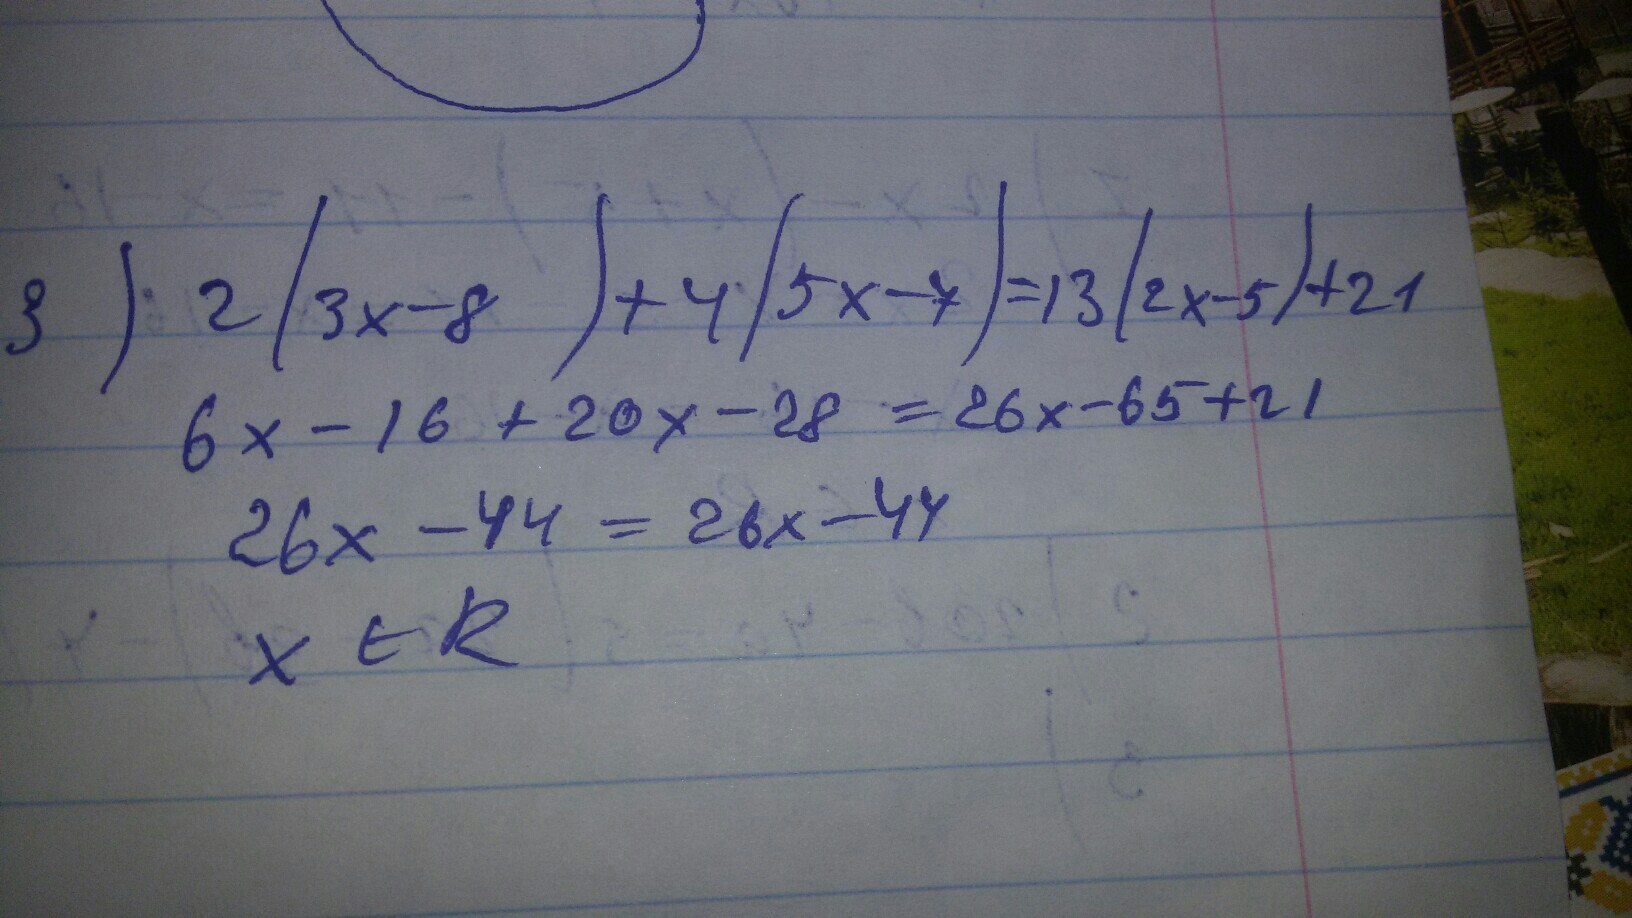 3) 2(3x-8)+4(5x-7)=13(2x-5)+21
6x-16+20x-28=26x-65+21
26x-44=26x-44
x∈R